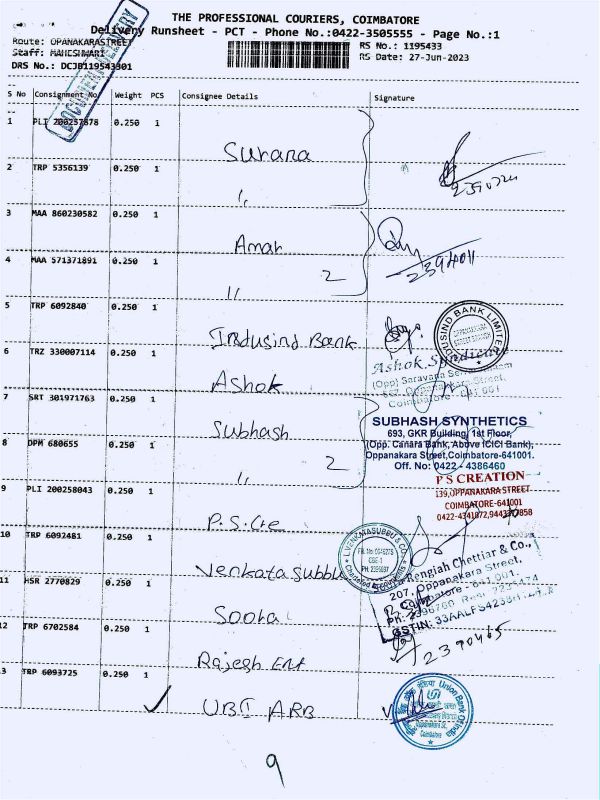 THE PROFESSIONAL COURIERS, COIMBATORE
Delivery Runsheet - PCT - Phone No.:0422-3505555 - Page No.:1
Route: OPANAKARASTREET
RS No.: 1195433
Staff: MAHESHWARI
RS Date: 27-Jun-2023
DRS No.: DCJB119543301
S No Consignment No. Weight PCS Consignee Details Signature
1 PLI 200257878 0.250 1
Surana
2 TRP 5356139 0.250 1
3 MAA 860230582 0.250 1
Amar
2394011
4 MAA 571371891 0.250 1
2
5 TRP 6092840 0.250 1
Indusind Bank
INDUSIND BANK LIMITED
6 TRZ 330007114 0.250 1
Ashok
Ashok Syndicate
7 SRT 301971763 0.250 1
Subhash
SUBHASH SYNTHETICS
693, GKR Building, 1st Floor,
(Opp. Canara Bank, Above ICICI Bank),
Oppanakara Street, Coimbatore-641001.
Off. No: 0422 - 4386460
8 DPM 680655 0.250 1
2
P S CREATION
139,OPPANAKARA STREET
COIMBATORE-641001
9 PLI 200258043 0.250 1
10 TRP 6092481 0.250 1
Venkata subbu
L.VENKATASUBBU & CO.
Rengiah Chettiar & Co.,
207, Oppanakara Street,
Coimbatore - 641 001.
11 HSR 2770829 0.250 1
12 TRP 6702584 0.250 1
Rajesh Ent
2390465
13 TRP 6093725 0.250 1
UBI ARB
Union Bank Of India
Coimbatore
9